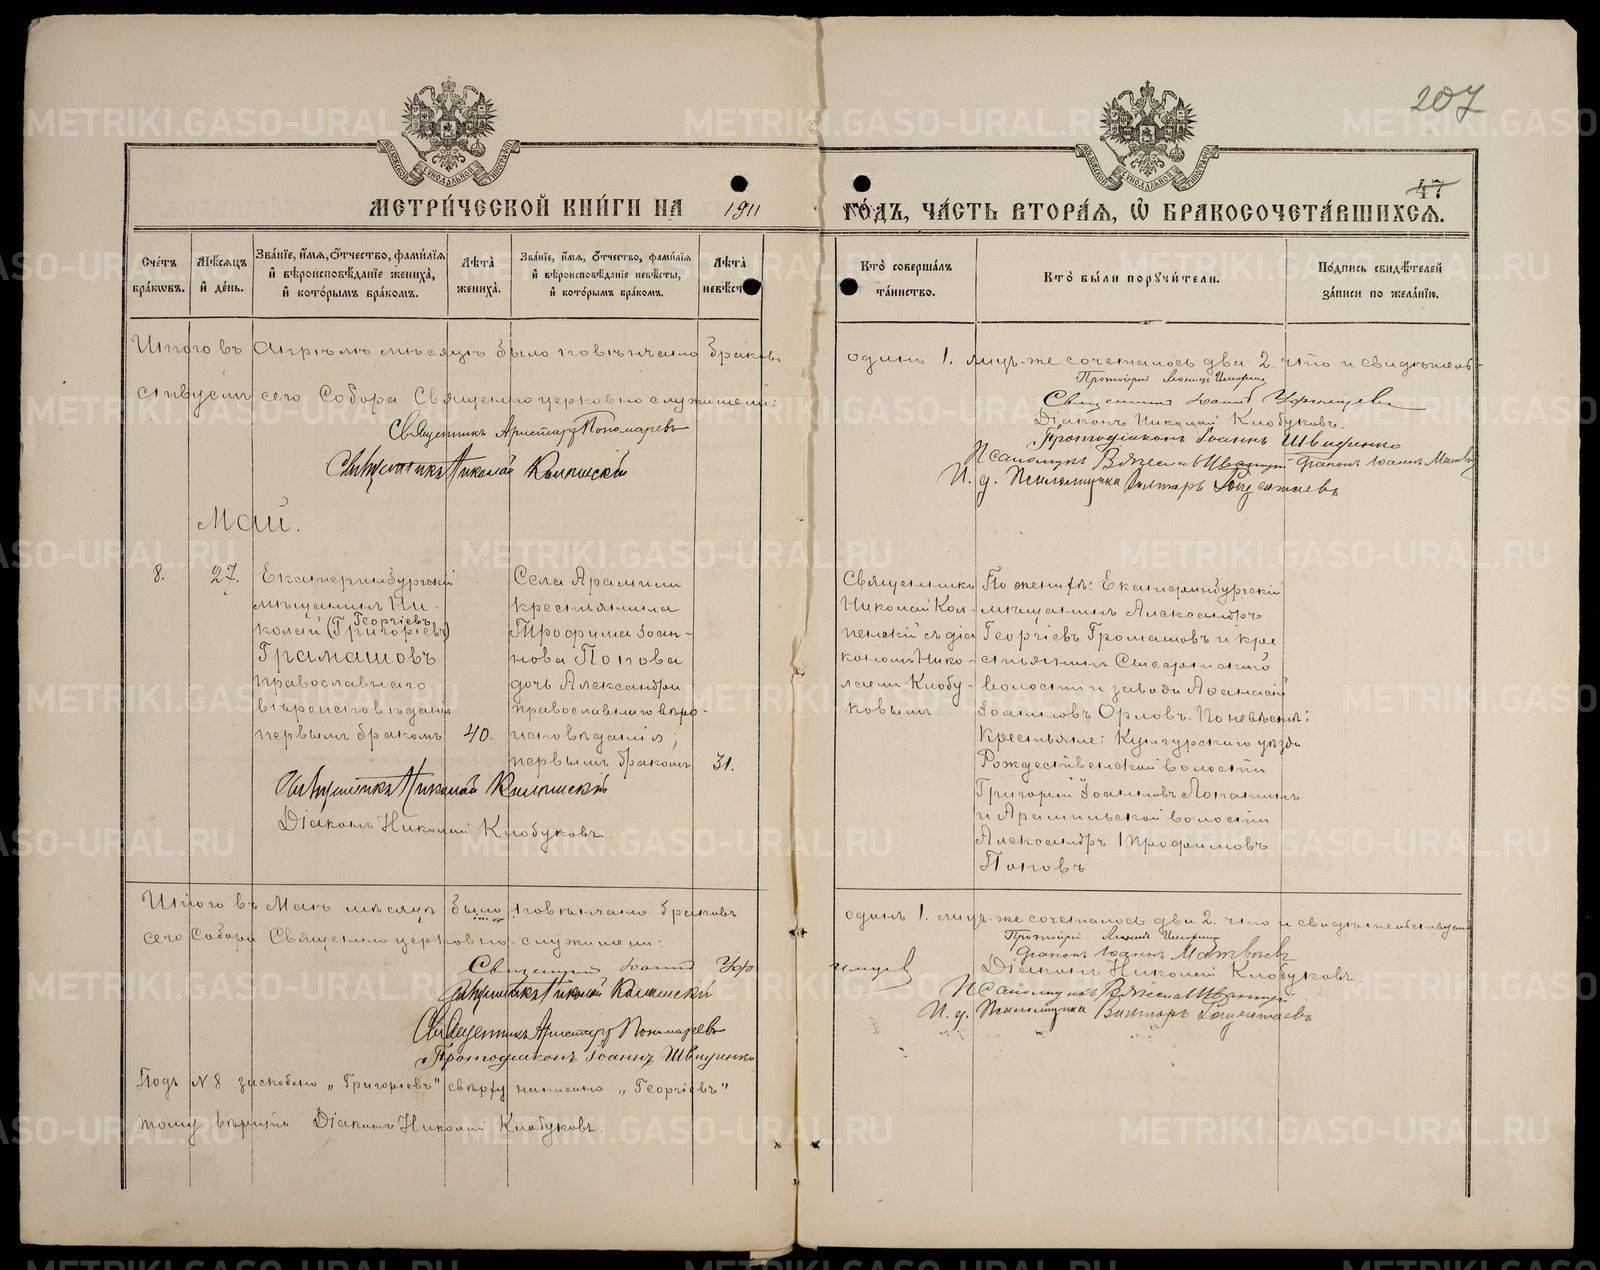 207
47
МЕТРИ́ЧЕСКОЙ КНИ́ГИ НА 1911 ГО́ДЪ, ЧА́СТЬ ВТОРА́Я, Ѡ БРАКОСОЧЕТА́ВШИХСЯ.
Сче́тъ бра́кѡвъ.
Мѣ́сяцъ и҆ де́нь.
Зва́нїе, и҆́мя, ѻ҆́тчество, фами́лїя и҆ вѣроисповѣ́данїе жениха̀, и҆ кото́рымъ бра́комъ.
Лѣ́та жениха̀.
Зва́нїе, и҆́мя, ѻ҆́тчество, фами́лїя и҆ вѣроисповѣ́данїе невѣ́сты, и҆ кото́рымъ бра́комъ.
Лѣ́та невѣ́сты
Кто̀ соверша́лъ та́инство.
Кто̀ бы́ли порꙋчи́тели.
По́дпись свидѣ́телей за́писи по жела́нїю.
Итого въ Апрѣлѣ мѣсяцѣ было повѣнчано браковъ одинъ 1. лицъ-же сочеталось два 2. что и свидѣтель-
ствуемъ сего Собора Священно церковно служители:
Священникъ Аристархъ Пономаревъ
Священникъ Николай
Протоіерей
Священникъ Іоаннъ
Діаконъ Николай Клобуковъ.
Протодіаконъ Іоаннъ Швиденко
Псаломщикъ
діаконъ Іоаннъ
И. д. Псаломщика Викторъ
Май.
8.
27.
Екатеринбургскій
мѣщанинъ Ни-
Георгіевъ
колай (Григоріевъ)
Грамашовъ
православнаго
вѣроисповѣданія
первымъ бракомъ
40.
Села Арамили
крестьянина
Трофима Іоан-
нова Попова
дочь Александра
православнаго вѣро-
исповѣданія;
первымъ бракомъ
31.
Священникъ
Николай Кол-
съ діа
кономъ Нико-
лаемъ Клобу-
ковымъ.
По женихѣ: Екатеринбургскій
мѣщанинъ Александръ
Георгіевъ Громашовъ и кре-
стьянинъ Сысертскаго
волости и завода Аѳанасій
Іоанновъ Орловъ. По невѣстѣ:
Крестьяне: Кунгурскаго уѣзда
Рождественской волости
Григорій Іоанновъ Лопатинъ
и Арамильской волости
Александръ Трофимовъ
Поповъ
Священникъ Николай
Діаконъ Николай Клобуковъ.
Итого въ Маѣ мѣсяцѣ было повѣнчано браковъ одинъ 1. лицъ-же сочеталось два 2. что и свидѣтельствуемъ
сего Собора Священно церковно-служители:
Священникъ Іоаннъ
Священникъ Николай
Священникъ Аристархъ Пономаревъ
Протодіаконъ Іоаннъ Швиденко
Протоіерей
діаконъ Іоаннъ Матвѣевъ
Діаконъ Николай Клобуковъ.
Псаломщикъ
И. д. Псаломщика Викторъ
Подъ № 8 заскоблено „Григоріевъ" сверху написано „Георгіевъ"
тому вѣрить Діаконъ Николай Клобуковъ.
METRIKI.GASO-URAL.RU